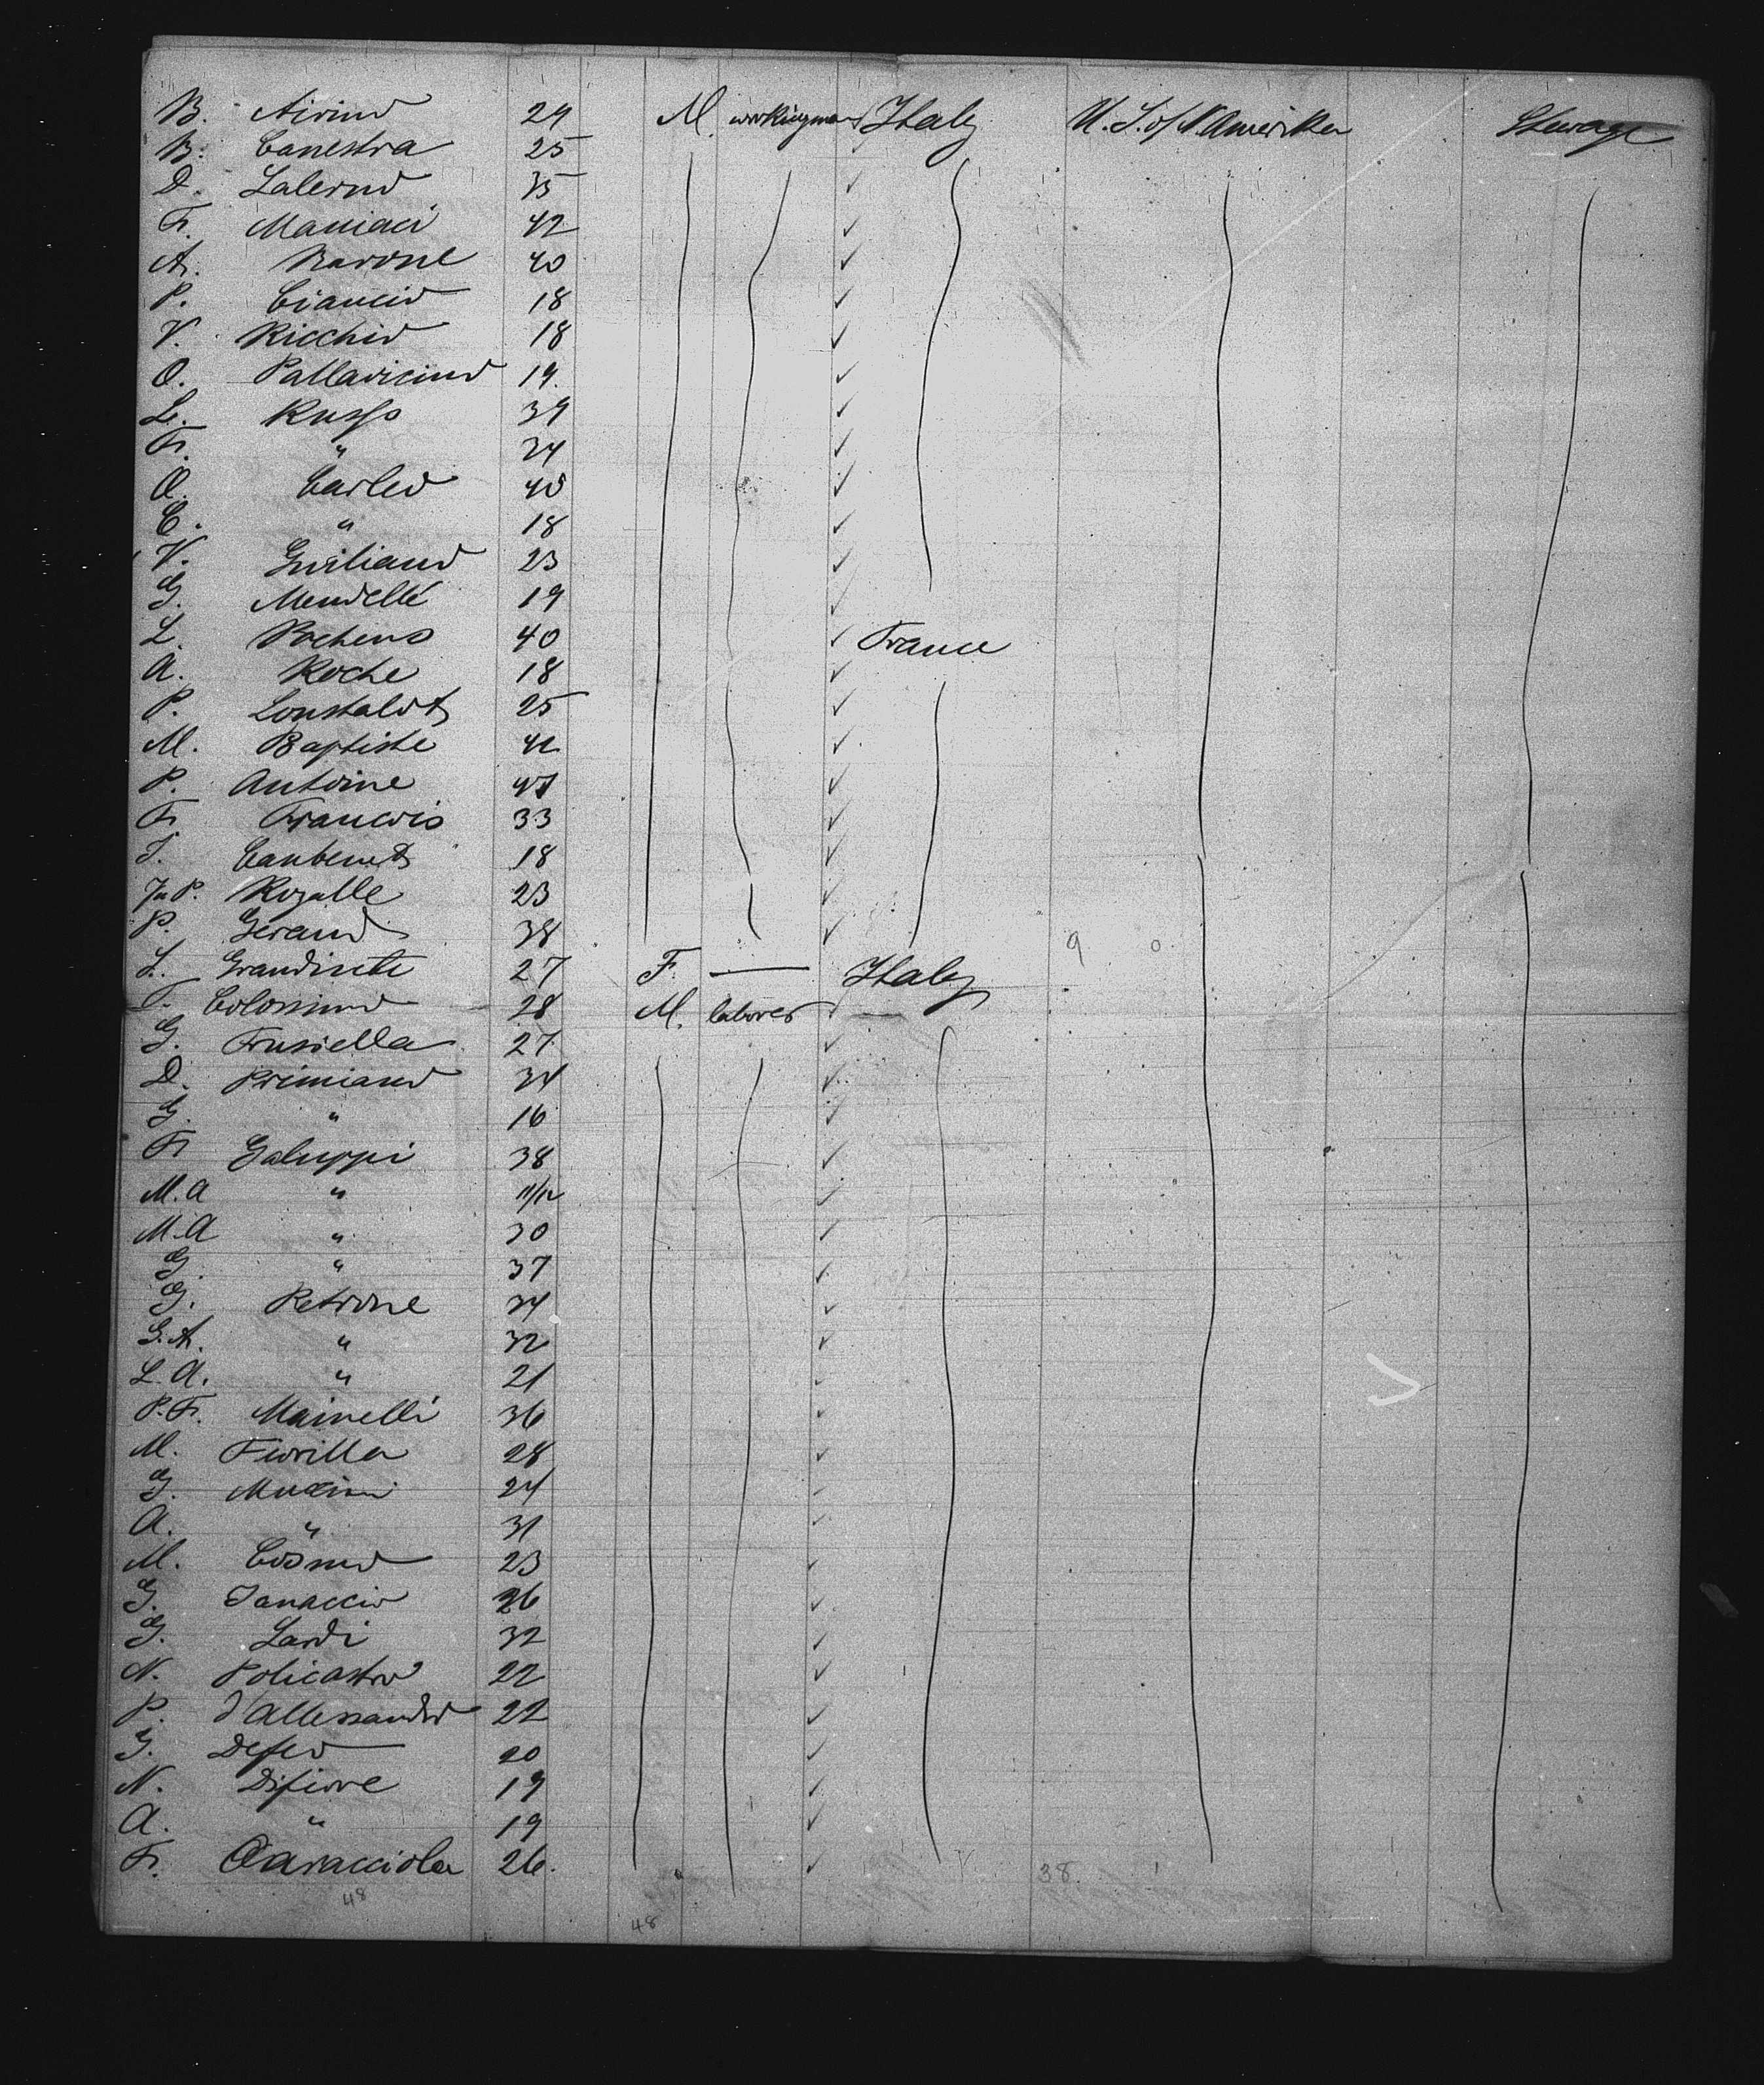 B. Airino 29 M. workingman Italy U. S. of N. Amerika Steerage
B. Canestra 25
D. Salerno 35
Fr. Maniaci 42
A. Barone 40
P. Ciancio 18
V. Ricchio 18
O. Pallavicino 19.
L. Russo 39
Fr. " 24
O. Carleo 40
C. " 18
V. Giuliano 23
G. Mendelle 19
L. Pochens 40 France
A. Roche 18
P. Loustalot 25
M. Baptiste 42
P. Antoine 47
Fr Francois 33
J. 18
Jn P. Rozalle 23
P. Geraud 38
9 0
L. 27 F. — Italy
F. Colossimo 28 M. laborer
G. Frusiella 27
D. Primiano 34
G. " 16
Fr Galuppi 38
M. A " 11/12
M. A " 30
G. " 37
G. Petrone 34
G. A. " 32
L. A. " 21
P. Fr. Mainelli 36
M. Fiorilla 28
G. 24
A. " 31
M. Cosmo 23
G. Ianaccio 26
G. Sardi 32
N. Policastro 22
P. d'Allessandro 22
G. Defeo 20
N. Difiore 19
A. " 19
Fr. Caracciola 26.
38
48
48